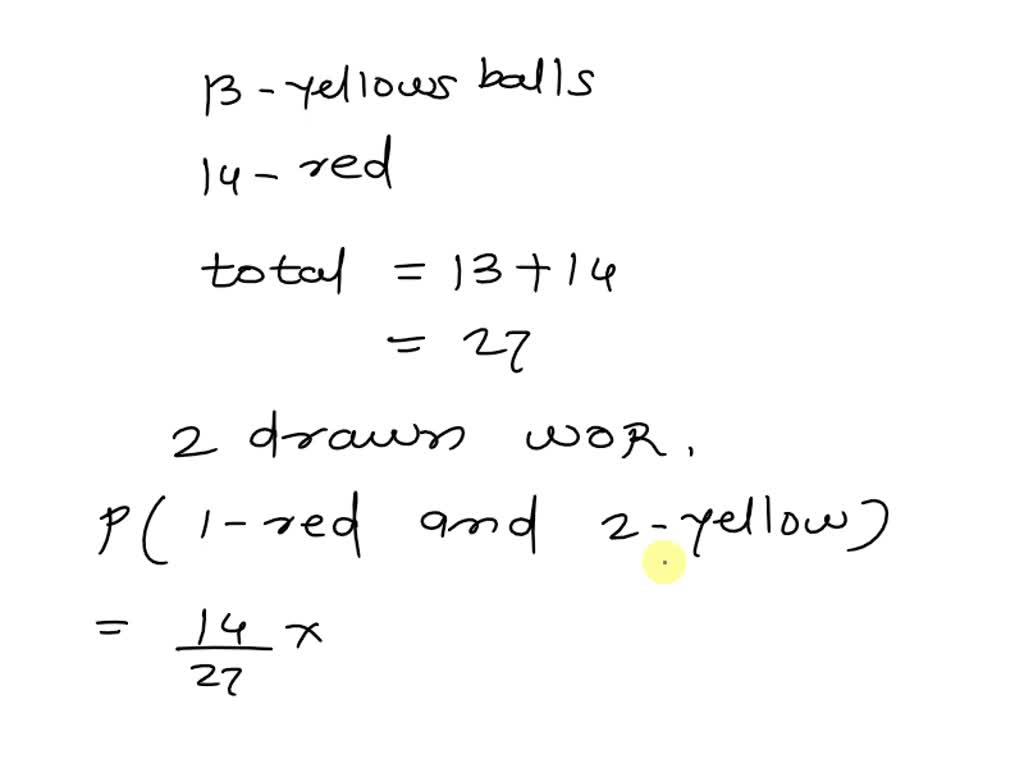 13 - yellows balls
14 - red
total = 13 + 14
= 27
2 drawn WOR.
P( 1 - red and 2 - yellow)
= 14/27 x